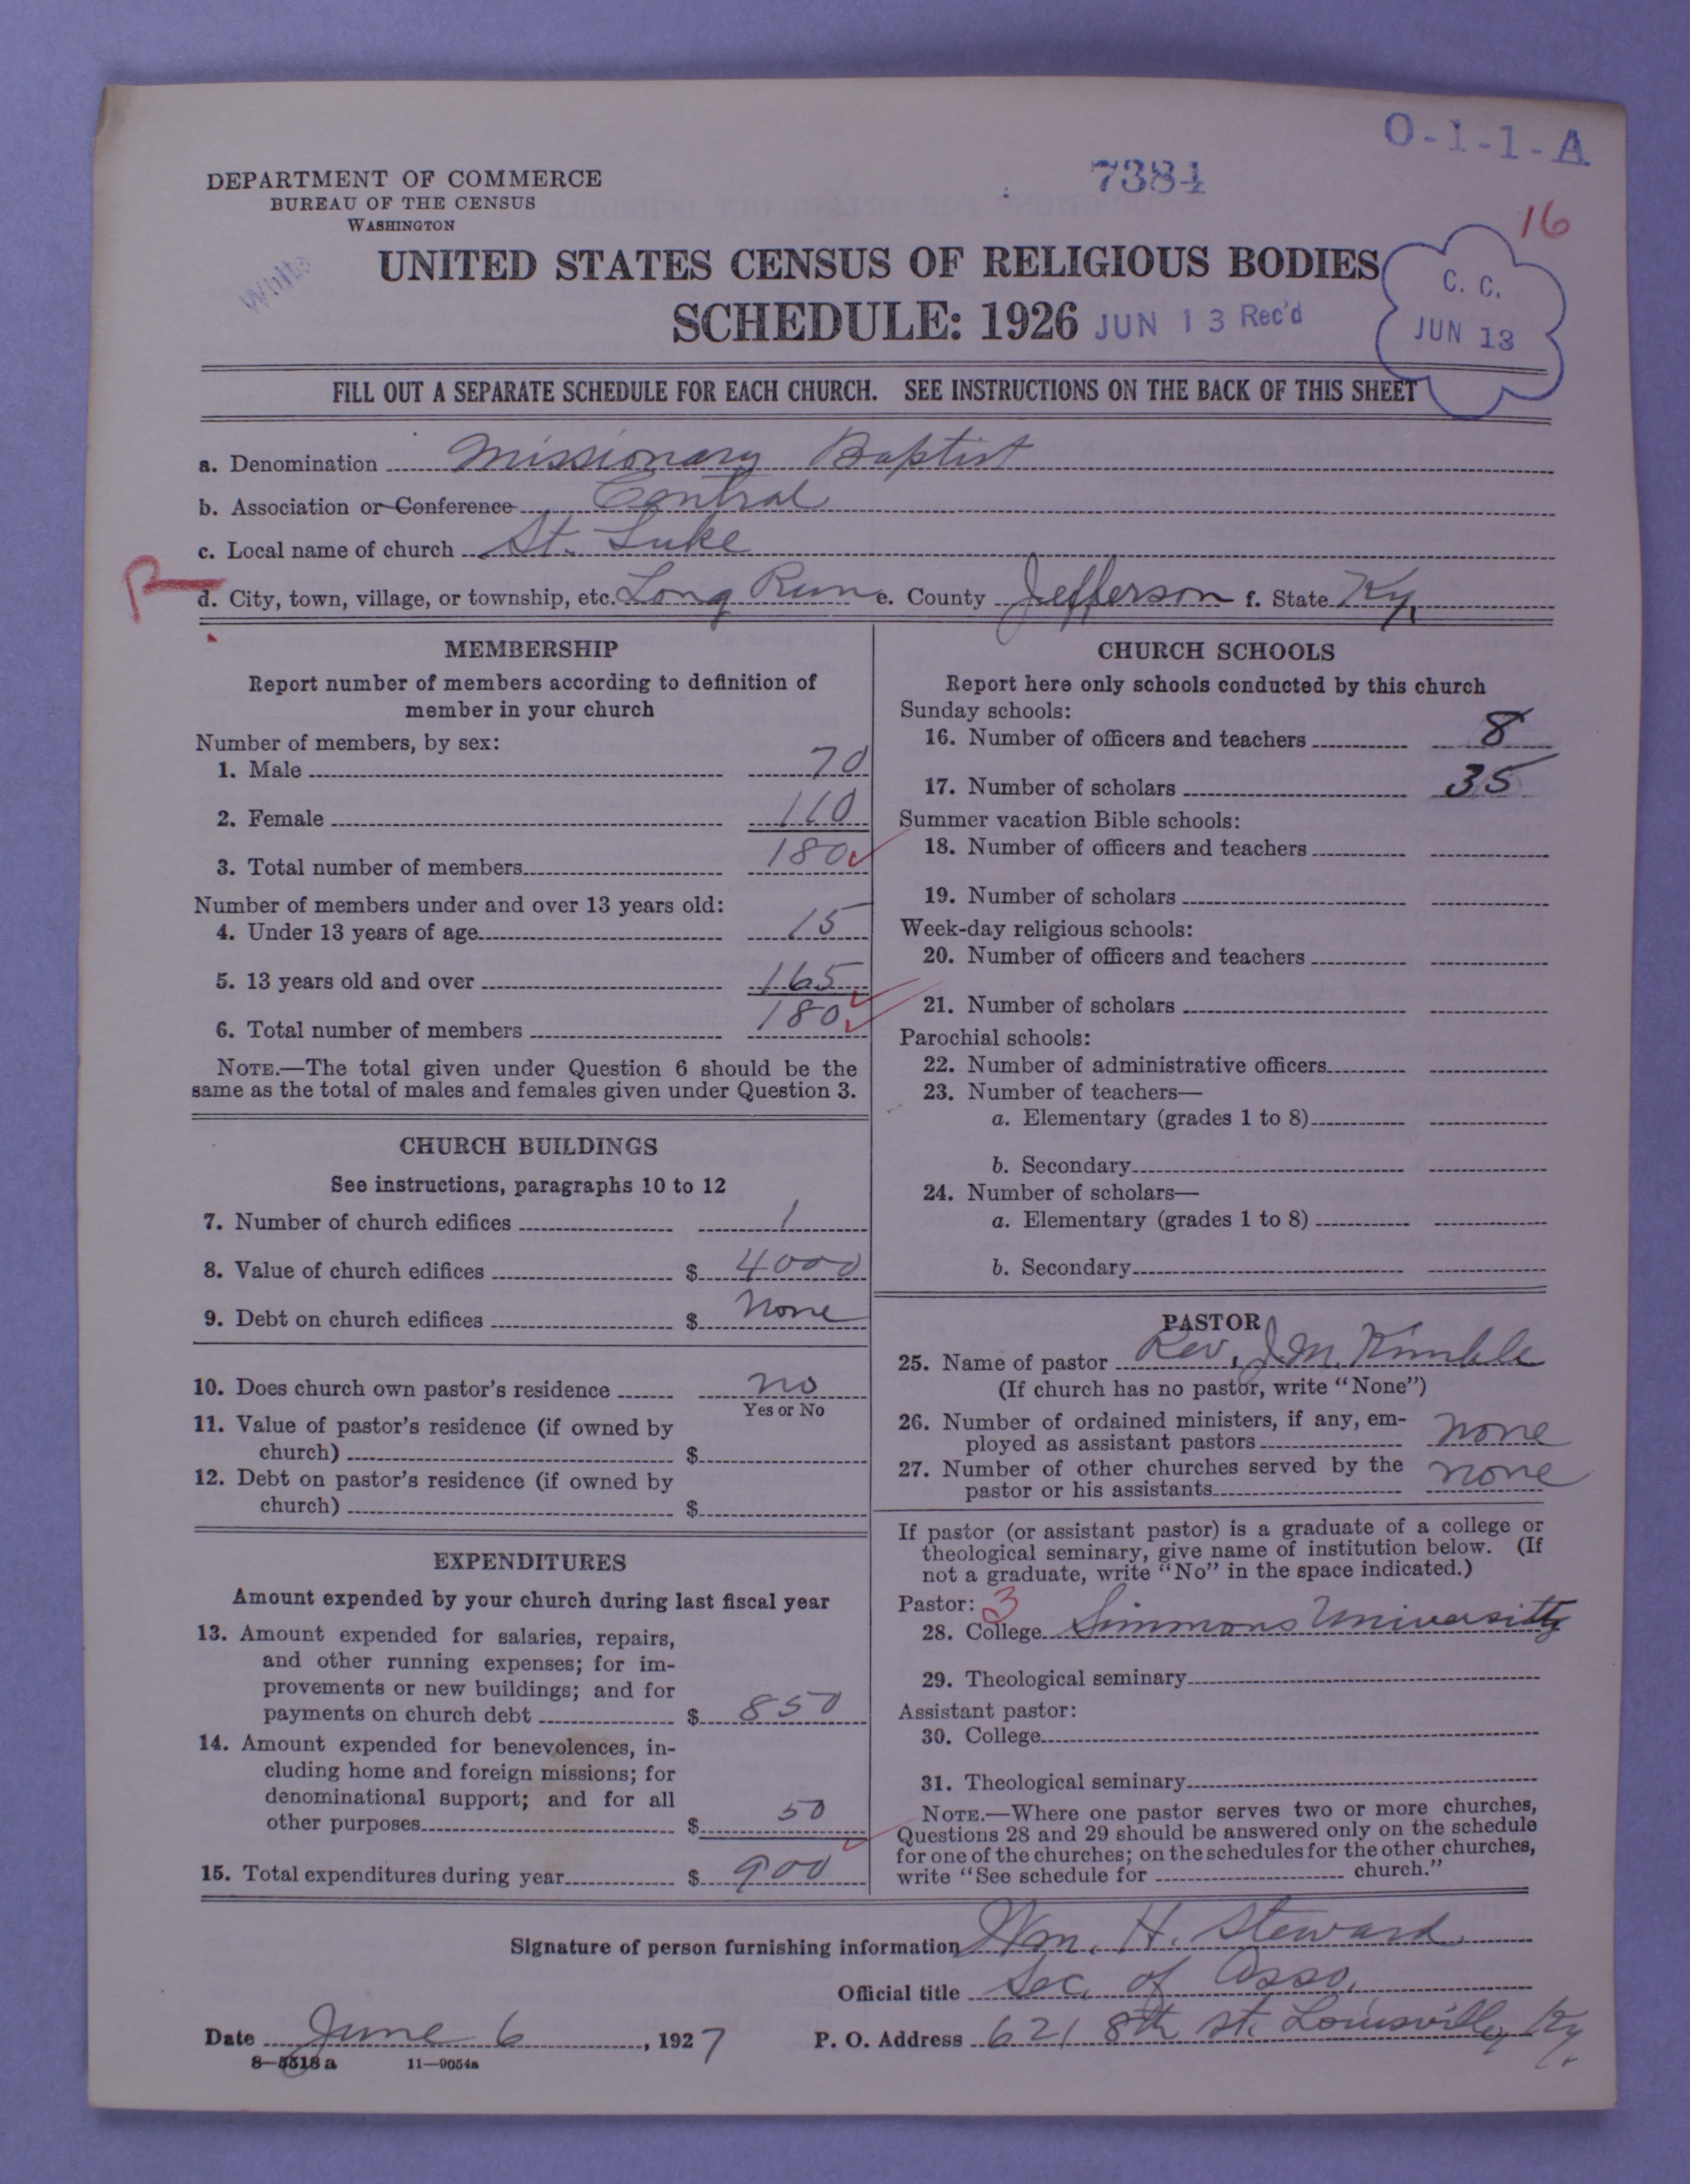 O-1-1-A
DEPARTMENT OF COMMERCE
BUREAU OF THE CENSUS
WASHINGTON
7384
16
White
UNITED STATES CENSUS OF RELIGIOUS BODIES
SCHEDULE: 1926
JUN 13 Rec'd
C. C.
JUN 13
FILL OUT A SEPARATE SCHEDULE FOR EACH CHURCH. SEE INSTRUCTIONS ON THE BACK OF THIS SHEET
a. Denomination Missionary Baptist
b. Association or Conference Central
c. Local name of church St. Luke
R
d. City, town, village, or township, etc. Long Run e. County Jefferson f. State Ky.
MEMBERSHIP
Report number of members according to definition of
member in your church
Number of members, by sex:
1. Male 70
2. Female 110
3. Total number of members 180
Number of members under and over 13 years old:
4. Under 13 years of age 15
5. 13 years old and over 165
6. Total number of members 180
NOTE.—The total given under Question 6 should be the
same as the total of males and females given under Question 3.
CHURCH BUILDINGS
See instructions, paragraphs 10 to 12
7. Number of church edifices 1
8. Value of church edifices $ 4000
9. Debt on church edifices $ None
10. Does church own pastor's residence no
Yes or No
11. Value of pastor's residence (if owned by
church) $
12. Debt on pastor's residence (if owned by
church) $
EXPENDITURES
Amount expended by your church during last fiscal year
13. Amount expended for salaries, repairs,
and other running expenses; for im-
provements or new buildings; and for
payments on church debt $ 850
14. Amount expended for benevolences, in-
cluding home and foreign missions; for
denominational support; and for all
other purposes $ 50
15. Total expenditures during year $ 900
CHURCH SCHOOLS
Report here only schools conducted by this church
Sunday schools:
16. Number of officers and teachers 8
17. Number of scholars 35
Summer vacation Bible schools:
18. Number of officers and teachers
19. Number of scholars
Week-day religious schools:
20. Number of officers and teachers
21. Number of scholars
Parochial schools:
22. Number of administrative officers
23. Number of teachers—
a. Elementary (grades 1 to 8)
b. Secondary
24. Number of scholars—
a. Elementary (grades 1 to 8)
b. Secondary
PASTOR
25. Name of pastor Rev. J. M. Kimble
(If church has no pastor, write "None")
26. Number of ordained ministers, if any, em-
ployed as assistant pastors none
27. Number of other churches served by the
pastor or his assistants none
If pastor (or assistant pastor) is a graduate of a college or
theological seminary, give name of institution below. (If
not a graduate, write "No" in the space indicated.)
Pastor: 3
28. College Simmons University
29. Theological seminary
Assistant pastor:
30. College
31. Theological seminary
NOTE.—Where one pastor serves two or more churches,
Questions 28 and 29 should be answered only on the schedule
for one of the churches; on the schedules for the other churches,
write "See schedule for church."
Signature of person furnishing information Wm. H. Steward
Official title Sec. of Asso.
Date June 6, 1927 P. O. Address 621 8th st. Louisville, Ky.
8—5518 a 11—9054a